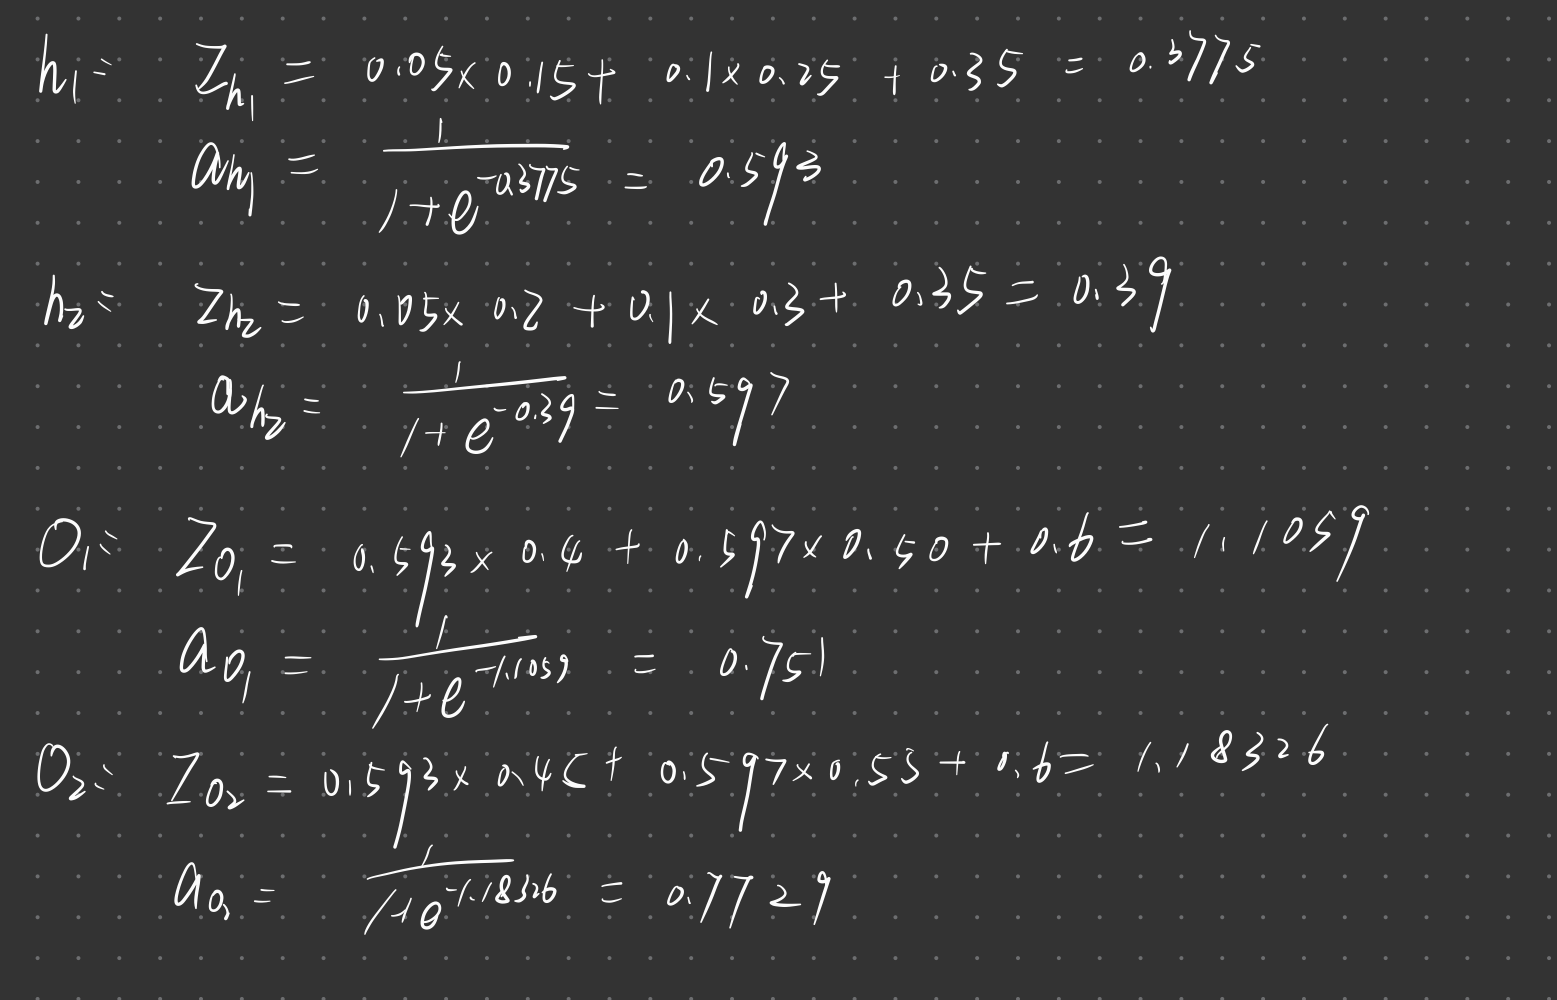 h₁: Z_h₁ = 0.05 × 0.15 + 0.1 × 0.25 + 0.35 = 0.3775
a_h₁ = 1/(1+e^(-0.3775)) = 0.593
h₂: Z_h₂ = 0.05 × 0.2 + 0.1 × 0.3 + 0.35 = 0.39
a_h₂ = 1/(1+e^(-0.39)) = 0.597
O₁: Z_O₁ = 0.593 × 0.4 + 0.597 × 0.50 + 0.6 = 1.1059
a_O₁ = 1/(1+e^(-1.1059)) = 0.751
O₂: Z_O₂ = 0.593 × 0.45 + 0.597 × 0.55 + 0.6 = 1.18326
a_O₂ = 1/(1+e^(-1.18326)) = 0.7729